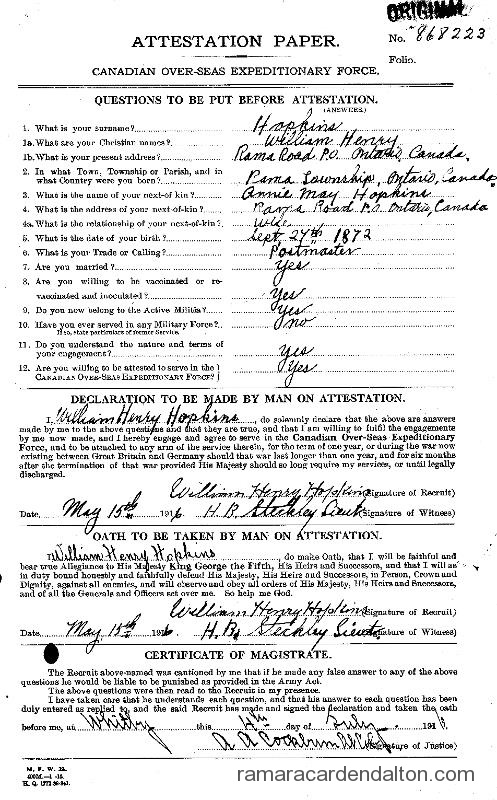 ORIGINAL
ATTESTATION PAPER.
No. 868223
Folio.
CANADIAN OVER-SEAS EXPEDITIONARY FORCE.
QUESTIONS TO BE PUT BEFORE ATTESTATION.
(ANSWERS.)
1. What is your surname? Hopkins
1a. What are your Christian names? William Henry
1b. What is your present address? Rama Road P.O. Ontario, Canada.
2. In what Town, Township or Parish, and in
what Country were you born? Rama Township, Ontario, Canada
3. What is the name of your next-of-kin? Annie May Hopkins
4. What is the address of your next-of-kin? Rama Road P.O. Ontario, Canada
4a. What is the relationship of your next-of-kin? Wife
5. What is the date of your birth? Sept. 27th 1872
6. What is your Trade or Calling? Postmaster
7. Are you married? Yes
8. Are you willing to be vaccinated or re-
vaccinated and inoculated? Yes
9. Do you now belong to the Active Militia? Yes
10. Have you ever served in any Military Force? No
If so, state particulars of former Service.
11. Do you understand the nature and terms of
your engagement? Yes
12. Are you willing to be attested to serve in the
CANADIAN OVER-SEAS EXPEDITIONARY FORCE? Yes
DECLARATION TO BE MADE BY MAN ON ATTESTATION.
I, William Henry Hopkins, do solemnly declare that the above are answers
made by me to the above questions and that they are true, and that I am willing to fulfil the engagements
by me now made, and I hereby engage and agree to serve in the Canadian Over-Seas Expeditionary
Force, and to be attached to any arm of the service therein, for the term of one year, or during the war now
existing between Great Britain and Germany should that war last longer than one year, and for six months
after the termination of that war provided His Majesty should so long require my services, or until legally
discharged.
William Henry Hopkins (Signature of Recruit)
Date May 15th 1916 H. B. Steckley Lieut (Signature of Witness)
OATH TO BE TAKEN BY MAN ON ATTESTATION.
I, William Henry Hopkins, do make Oath, that I will be faithful and
bear true Allegiance to His Majesty King George the Fifth, His Heirs and Successors, and that I will as
in duty bound honestly and faithfully defend His Majesty, His Heirs and Successors, in Person, Crown and
Dignity, against all enemies, and will observe and obey all orders of His Majesty, His Heirs and Successors,
and of all the Generals and Officers set over me. So help me God.
William Henry Hopkins (Signature of Recruit)
Date May 15th 1916 H. B. Steckley Lieut (Signature of Witness)
CERTIFICATE OF MAGISTRATE.
The Recruit above-named was cautioned by me that if he made any false answer to any of the above
questions he would be liable to be punished as provided in the Army Act.
The above questions were then read to the Recruit in my presence.
I have taken care that he understands each question, and that his answer to each question has been
duly entered as replied to, and the said Recruit has made and signed the declaration and taken the oath
before me, at Whitby this day of July 191
(Signature of Justice)
M. F. W. 23.
ramaracardendalton.com